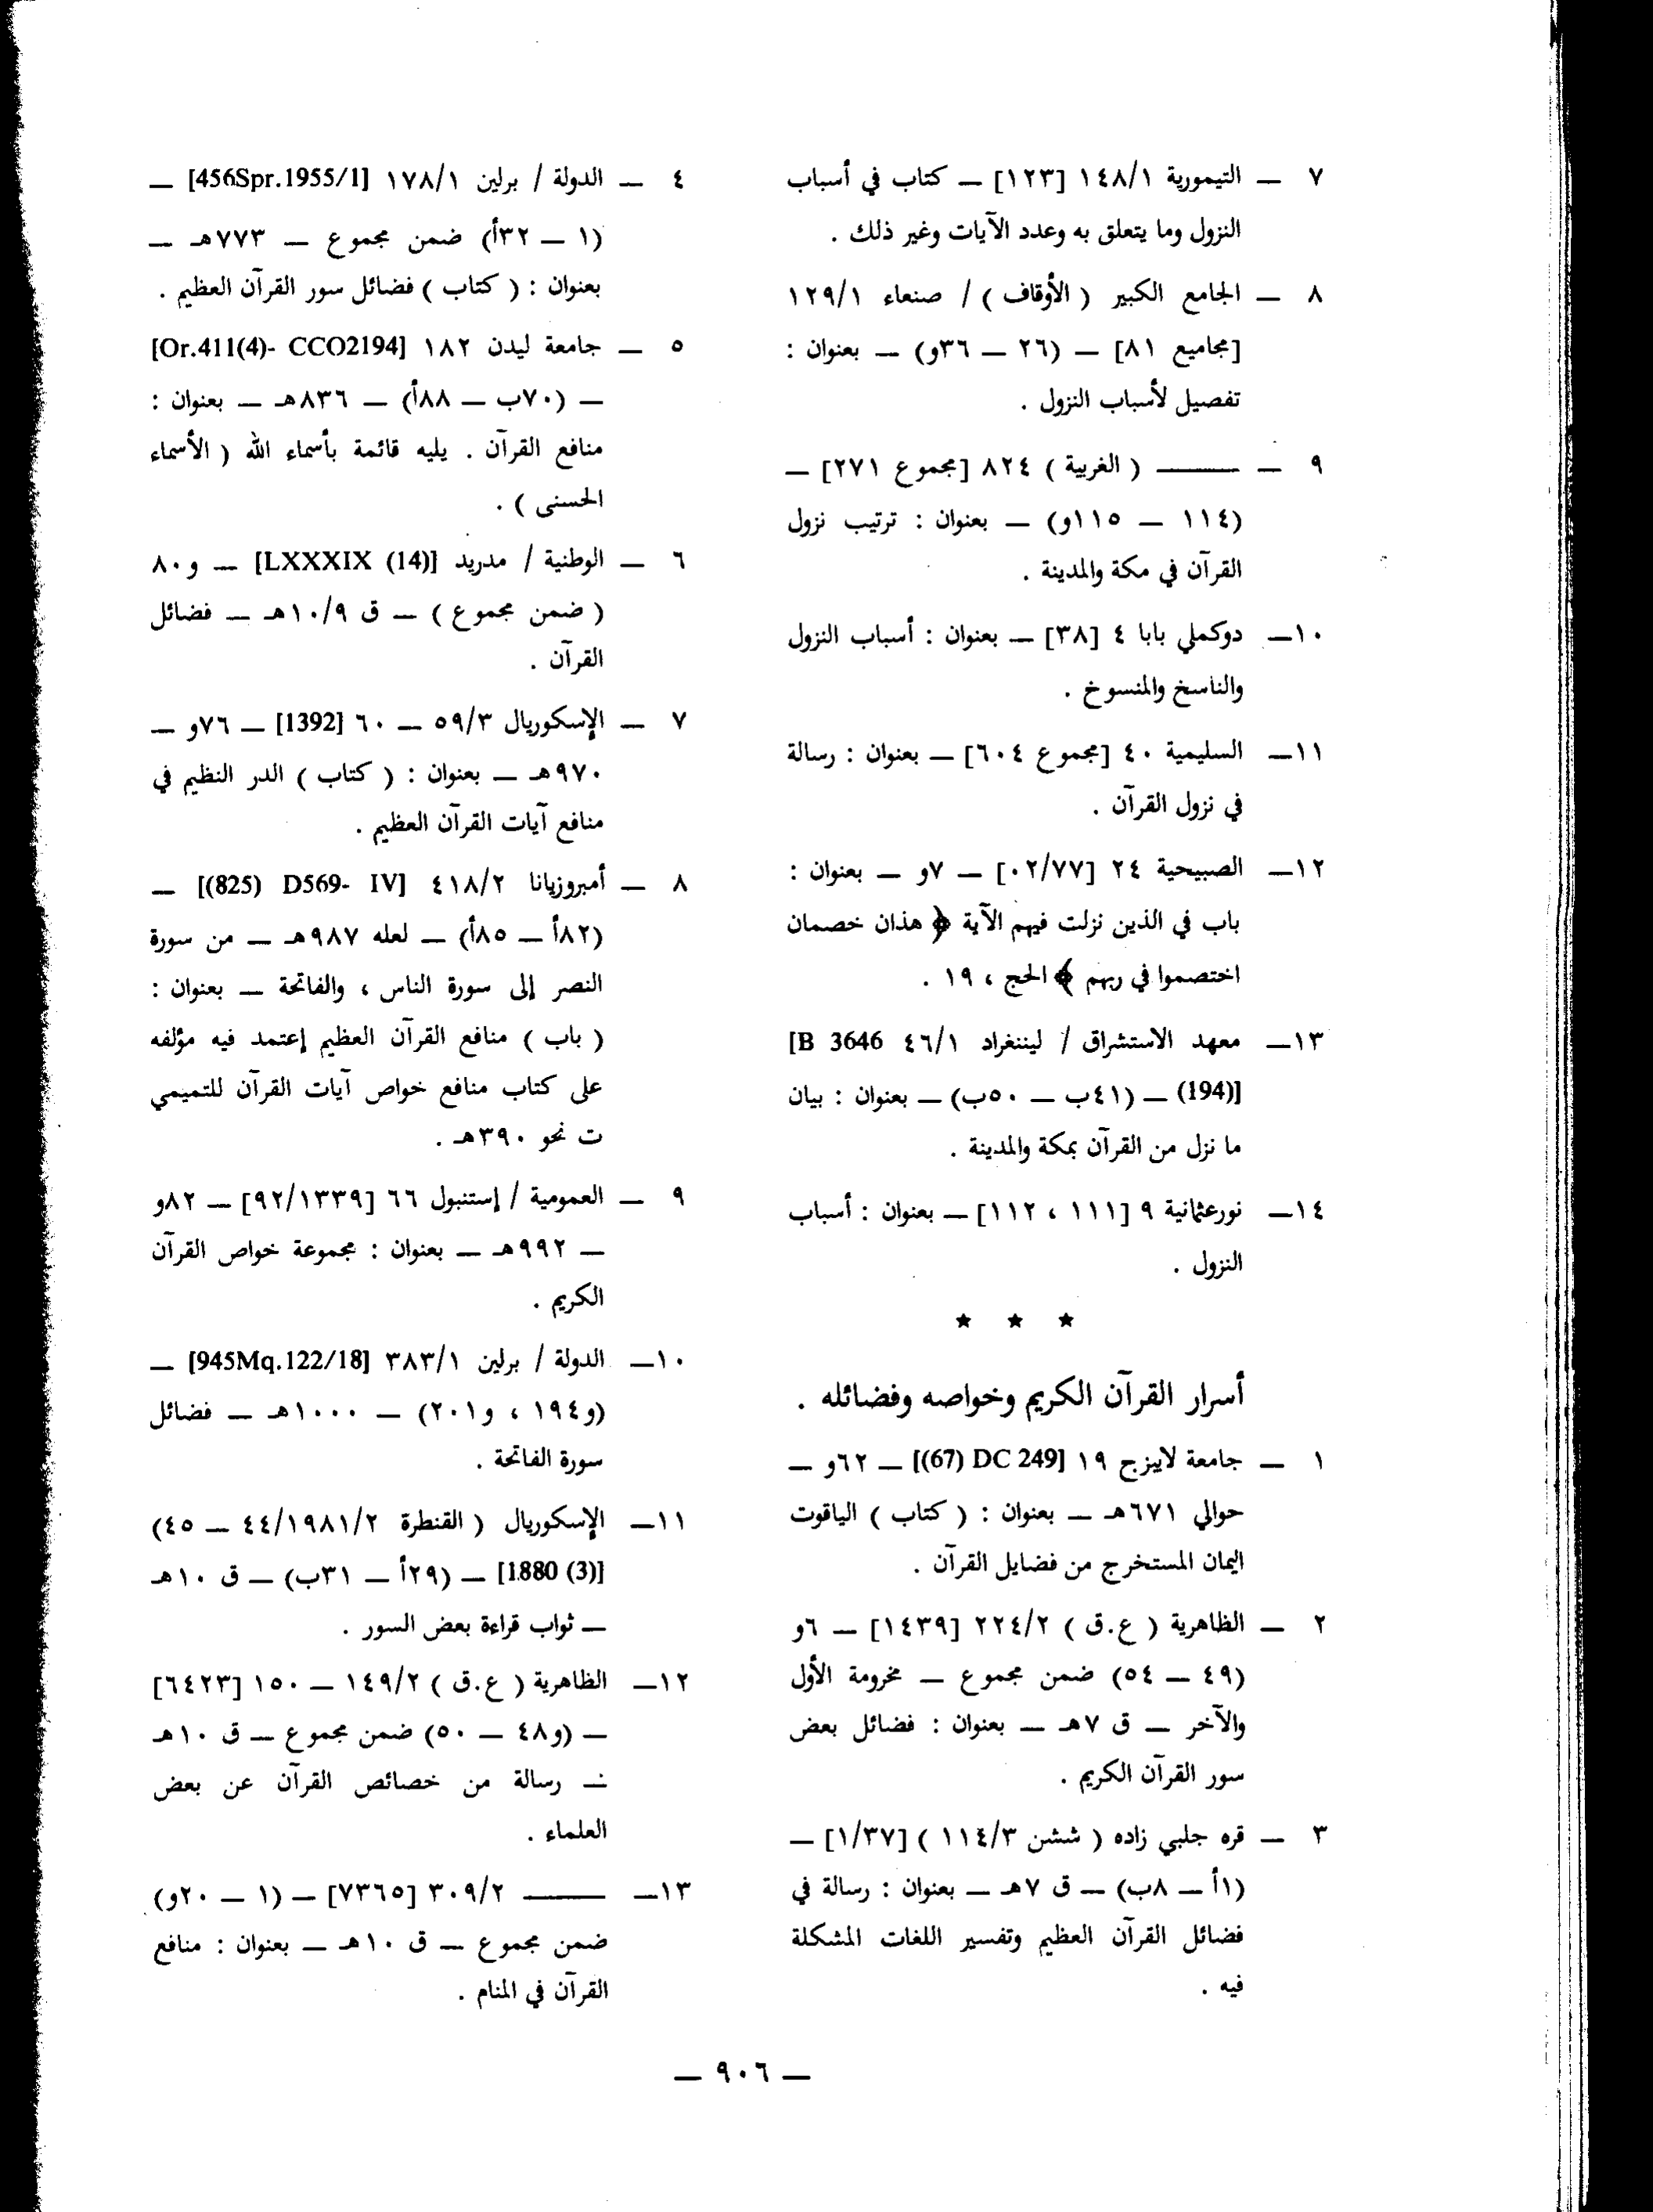 ٧ — التيمورية ١٤٨/١ [١٢٣] — كتاب في أسباب
النزول وما يتعلق به وعدد الآيات وغير ذلك .
٨ — الجامع الكبير ( الأوقاف ) / صنعاء ١٢٩/١
[مجاميع ٨١] — (٢٦ — ٣٦و) — بعنوان :
تفصيل لأسباب النزول .
٩ — ——— ( الغربية ) ٨٢٤ [مجموع ٢٧١] —
(١١٤ — ١١٥و) — بعنوان : ترتيب نزول
القرآن في مكة والمدينة .
١٠— دوكملي بابا ٤ [٣٨] — بعنوان : أسباب النزول
والناسخ والمنسوخ .
١١— السليمية ٤٠ [مجموع ٦٠٤] — بعنوان : رسالة
في نزول القرآن .
١٢— الصبيحية ٢٤ [٠٢/٧٧] — ٧و — بعنوان :
باب في الذين نزلت فيهم الآية ﴿ هذان خصمان
اختصموا في ربهم ﴾ الحج ، ١٩ .
١٣— معهد الاستشراق / ليننغراد ٤٦/١ [B 3646
(194)] — (٤١ب — ٥٠ب) — بعنوان : بيان
ما نزل من القرآن بمكة والمدينة .
١٤— نورعثمانية ٩ [١١١ ، ١١٢] — بعنوان : أسباب
النزول .
★ ★ ★
أسرار القرآن الكريم وخواصه وفضائله .
١ — جامعة لايبزج ١٩ [DC 249 (67)] — ٦٢و —
حوالي ٦٧١هـ — بعنوان : ( كتاب ) الياقوت
اليمان المستخرج من فضايل القرآن .
٢ — الظاهرية ( ع.ق ) ٢٢٤/٢ [١٤٣٩] — ٦و
(٤٩ — ٥٤) ضمن مجموع — مخرومة الأول
والآخر — ق ٧هـ — بعنوان : فضائل بعض
سور القرآن الكريم .
٣ — قره جلبي زاده ( ششن ١١٤/٣ ) [١/٣٧] —
(١أ — ٨ب) — ق ٧هـ — بعنوان : رسالة في
فضائل القرآن العظيم وتفسير اللغات المشكلة
فيه .
٤ — الدولة / برلين ١٧٨/١ [456Spr.1955/1] —
(١ — ٣٢أ) ضمن مجموع — ٧٧٣هـ —
بعنوان : ( كتاب ) فضائل سور القرآن العظيم .
٥ — جامعة ليدن ١٨٢ [Or.411(4)- CCO2194]
— (٧٠ب — ٨٨أ) — ٨٣٦هـ — بعنوان :
منافع القرآن . يليه قائمة بأسماء الله ( الأسماء
الحسنى ) .
٦ — الوطنية / مدريد [LXXXIX (14)] — و٨٠
( ضمن مجموع ) — ق ١٠/٩هـ — فضائل
القرآن .
٧ — الإسكوريال ٥٩/٣ — ٦٠ [1392] — ٧٦و —
٩٧٠هـ — بعنوان : ( كتاب ) الدر النظيم في
منافع آيات القرآن العظيم .
٨ — أمبروزيانا ٤١٨/٢ [D569- IV (825)] —
(٨٢أ — ٨٥أ) — لعله ٩٨٧هـ — من سورة
النصر إلى سورة الناس ، والفاتحة — بعنوان :
( باب ) منافع القرآن العظيم إعتمد فيه مؤلفه
على كتاب منافع خواص آيات القرآن للتميمي
ت نحو ٣٩٠هـ .
٩ — العمومية / إستنبول ٦٦ [٩٢/١٣٣٩] — ٨٢و
— ٩٩٢هـ — بعنوان : مجموعة خواص القرآن
الكريم .
١٠— الدولة / برلين ٣٨٣/١ [945Mq.122/18] —
(و١٩٤ ، و٢٠١) — ١٠٠٠هـ — فضائل
سورة الفاتحة .
١١— الإسكوريال ( القنطرة ٤٤/١٩٨١/٢ — ٤٥)
[1880 (3)] — (٢٩أ — ٣١ب) — ق ١٠هـ
— ثواب قراءة بعض السور .
١٢— الظاهرية ( ع.ق ) ١٤٩/٢ — ١٥٠ [٦٤٢٣]
— (و٤٨ — ٥٠) ضمن مجموع — ق ١٠هـ
— رسالة من خصائص القرآن عن بعض
العلماء .
١٣— ——— ٣٠٩/٢ [٧٣٦٥] — (١ — ٢٠و)
ضمن مجموع — ق ١٠هـ — بعنوان : منافع
القرآن في المنام .
— ٩٠٦ —